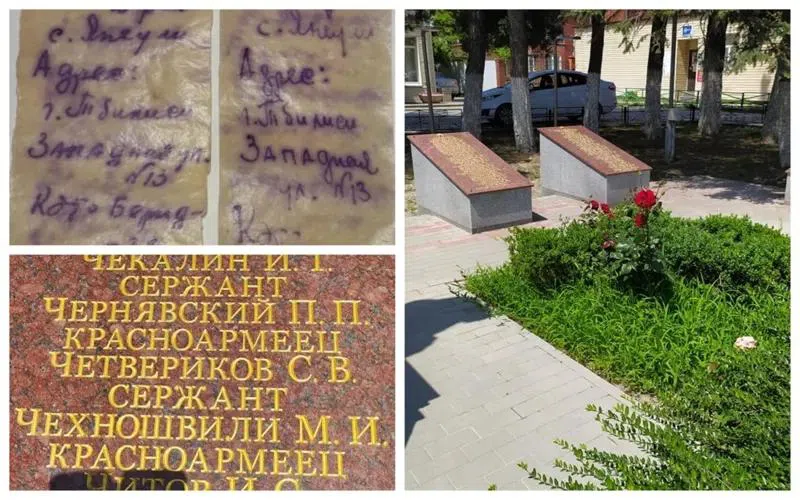 с. Янеули
Адрес:
г. Тбилиси
Западная ул.
№13
с. Янеули
Адрес:
г. Тбилиси
Западная
ул. №13
ЧЕКАЛИН И. Т.
СЕРЖАНТ
ЧЕРНЯВСКИЙ П. П.
КРАСНОАРМЕЕЦ
ЧЕТВЕРИКОВ С. В.
СЕРЖАНТ
ЧЕХНОШВИЛИ М. И.
КРАСНОАРМЕЕЦ
ЧИТОВ И. С.